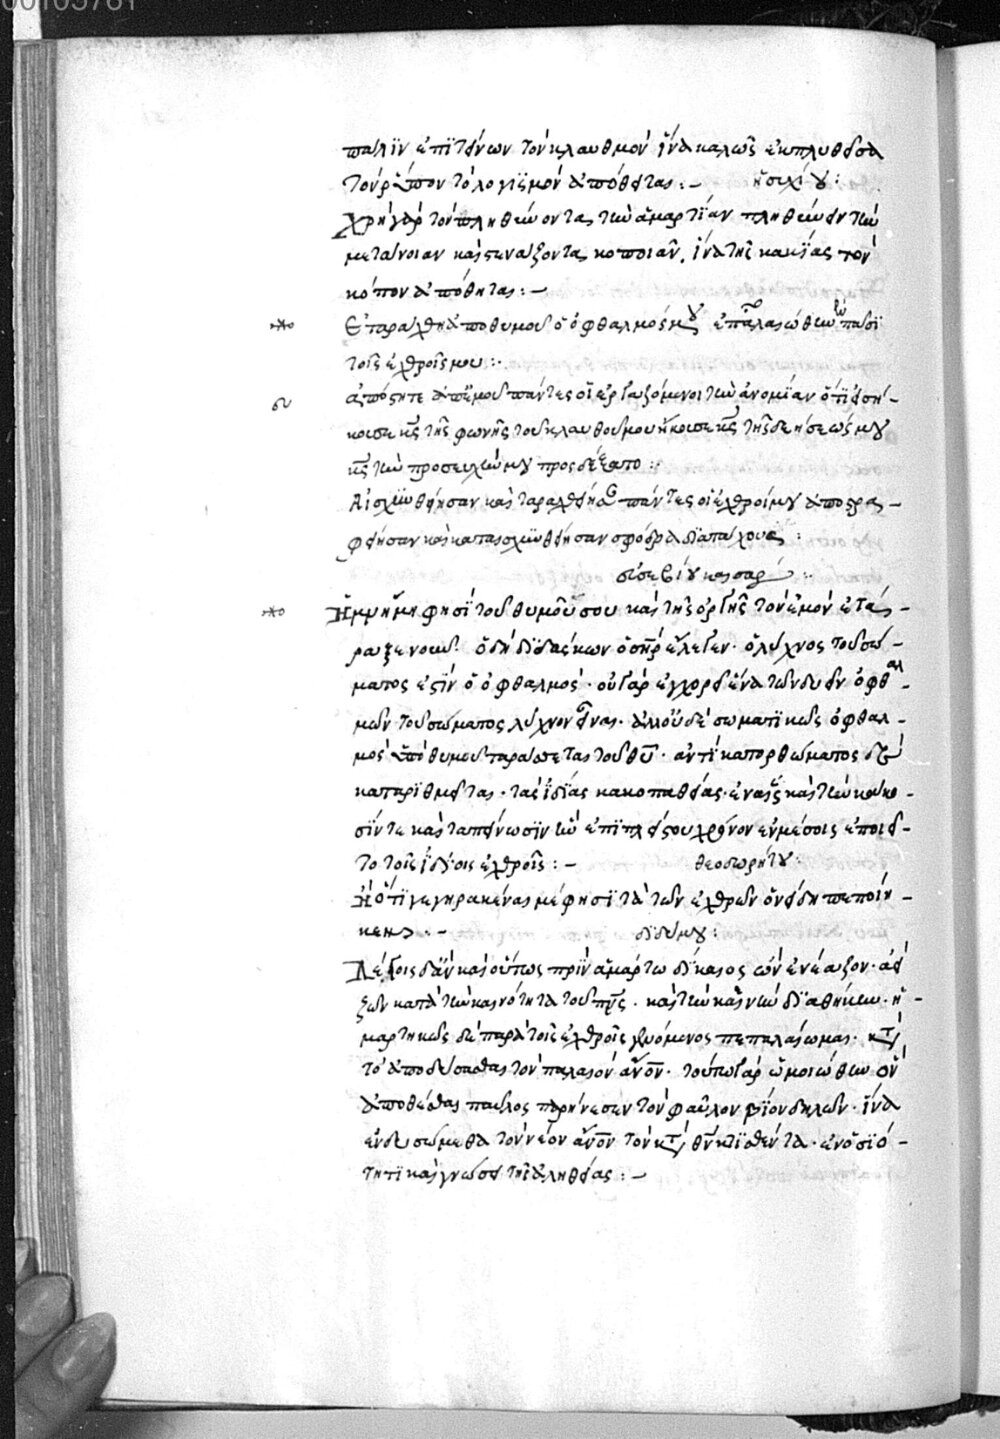 00105781
πάλιν ἐπιτείνων τὸν κλαυθμὸν ἵνα καλῶς ἐκπλυθεῖσα
τὸν ῥύπον τὸ λογισμὸν ἀπόθεται :— ἡσυχίου :
Χρὴ γὰρ τὸν πληθύνοντα τὴν ἁμαρτίαν πληθύνειν τὴν
μετάνοιαν καὶ συναύξοντα κοποιᾶν, ἵνα τῆς κακίας τὸν
κόπον ἀπόθηται :—
Ἐταράχθη ἀπὸ θυμοῦ ὁ ὀφθαλμός μου ἐπαλαιώθην ἐν πᾶσι
τοῖς ἐχθροῖς μου :
ἀπόστητε ἀπ' ἐμοῦ πάντες οἱ ἐργαζόμενοι τὴν ἀνομίαν ὅτι εἰσή-
κουσε κς τῆς φωνῆς τοῦ κλαυθμοῦ μου ἤκουσε κς τῆς δεήσεώς μου
κς τὴν προσευχήν μου προσεδέξατο :
Αἰσχυνθείησαν καὶ ταραχθείησαν πάντες οἱ ἐχθροί μου ἀποστρα-
φείησαν καὶ καταισχυνθείησαν σφόδρα διὰ τάχους :
εὐσεβίου καισαρ :
Ἡ μνήμη φησὶ τοῦ θυμοῦ σου καὶ τῆς ὀργῆς τὸν ἐμὸν ἐτά-
ραξε νοῦν· ὃ δὴ διδάσκων ὁ σηρ ἔλεγεν· ὁ λύχνος τοῦ σώ-
ματος ἐστὶν ὁ ὀφθαλμός· οὐ γὰρ ἐγχωρεῖ ἕνα τῶν δυεῖν ὀφθαλ-
μῶν τοῦ σώματος λύχνον εἶναι· ἀλλ' οὐδὲ σωματικῶς ὀφθαλ-
μὸς ὑπὸ θυμοῦ ταράσσεται τοῦ θυ· ἀντὶ κατορθώματος
καταριθμεῖται· τὰς ἰδίας κακοπαθείας· καὶ τὴν κάκω-
σίν τε καὶ ταπείνωσιν ἣν ἐπὶ πλεῖστον χρόνον ἐν μέσοις ἐποιεῖ-
το τοῖς ἰδίοις ἐχθροῖς :— θεοδωρήτου :
Ἢ ὅτι γεγηρακέναι με φησὶ τὰ τῶν ἐχθρῶν ὀνείδη πεποίη-
κεν :— διδύμου :
Λέγοις δ' ἂν καὶ οὕτως πρὶν ἁμάρτω δίκαιος ὢν ἐνέαζον·
ζῶν κατὰ τὴν καινότητα τοῦ πνς· καὶ τὴν καινὴν διαθήκην· ἡ-
μαρτηκὼς δὲ παρὰ τοῖς ἐχθροῖς γενόμενος πεπαλαίωμαι·
τὸ ἀποδύσασθαι τὸν παλαιὸν ἄνον· τούτῳ γὰρ ὡμοιώθην ὃν
ἀποθέσθαι παῦλος παρῄνεσεν τὸν φαῦλον βίον δηλῶν· ἵνα
ἐνδυσώμεθα τὸν νέον ἄνον τὸν κατὰ θν κτισθέντα· ἐν ὁσιό-
τητι καὶ γνώσει τῆς ἀληθείας :—